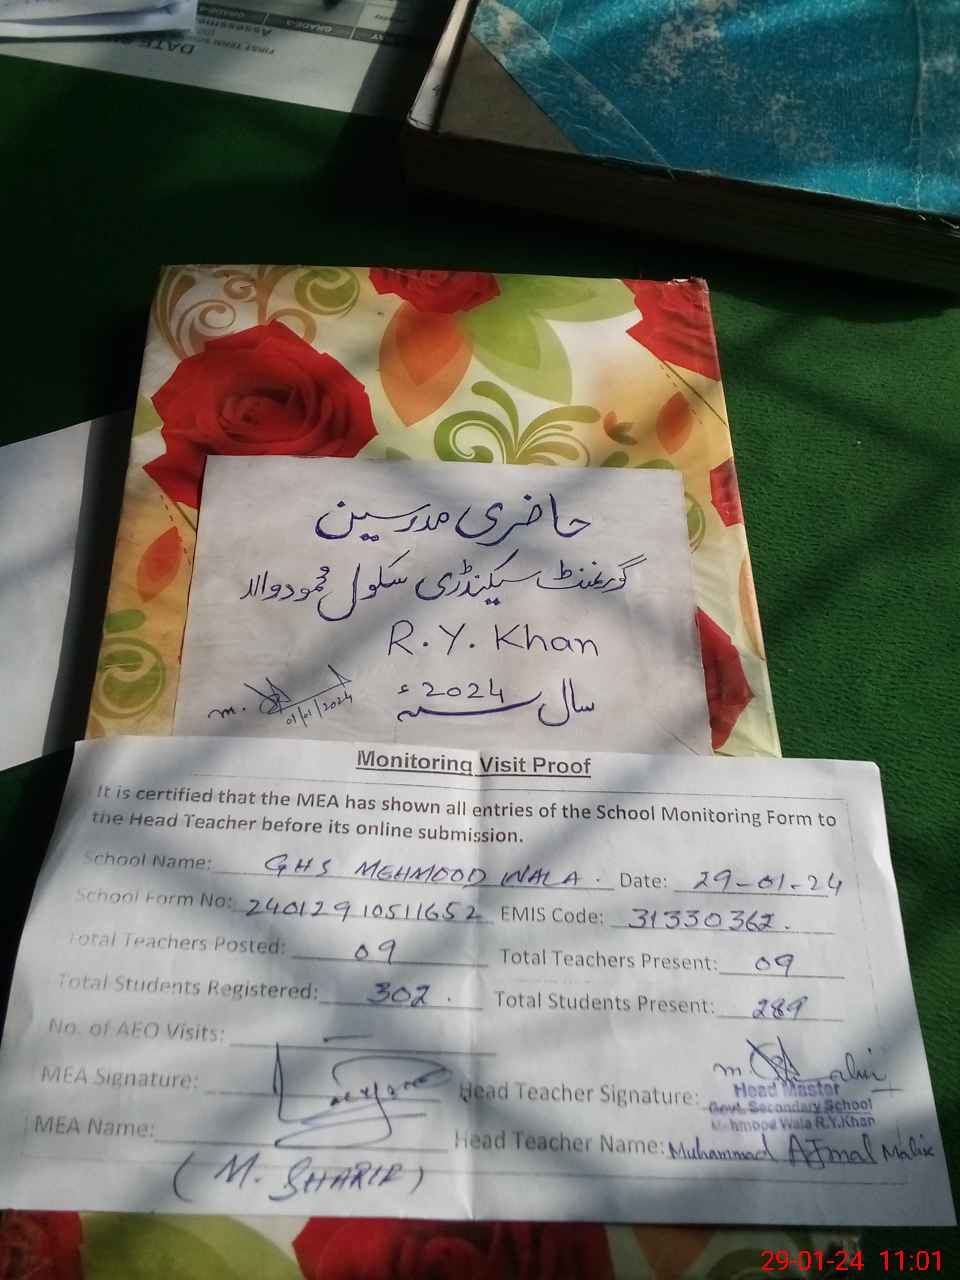 FIRST TERM
DATE
Assessme
حاضری مدرسین
گورنمنٹ سیکنڈری سکول محمود والہ
R. Y. Khan
سال سنہ 2024ء
m.
01/01/2024
Monitoring Visit Proof
It is certified that the MEA has shown all entries of the School Monitoring Form to
the Head Teacher before its online submission.
School Name: GHS MEHMOOD WALA. Date: 29-01-24
School Form No: 24012910511652 EMIS Code: 31330362.
Total Teachers Posted: 09 Total Teachers Present: 09
Total Students Registered: 302. Total Students Present: 289
No. of AEO Visits: —
MEA Signature: Head Teacher Signature:
Head Master
Govt. Secondary School
Mehmood Wala R.Y.Khan
MEA Name: Head Teacher Name: Muhammad Ajmal Malik
(M. SHARIF)
29-01-24 11:01